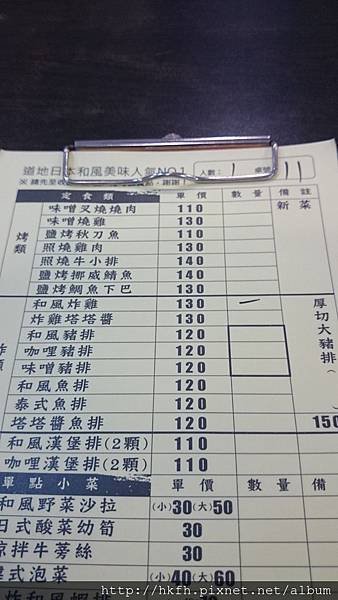 道地日本和風美味人氣NO.1 人數: 1 桌號 11
※請先至收
定食類 單價 數量 備註
味噌叉燒燒肉 110 新菜
味噌燒雞 130
鹽烤秋刀魚 110
照燒雞肉 130
照燒牛小排 140
鹽烤挪威鯖魚 140
鹽烤鯛魚下巴 130
烤類
和風炸雞 130 一
炸雞塔塔醬 130
和風豬排 120
咖哩豬排 120
味噌豬排 120
和風魚排 120
泰式魚排 120
塔塔醬魚排 120
厚切大豬排( )
150
和風漢堡排(2顆) 110
咖哩漢堡排(2顆) 110
單點小菜 單價 數量 備
和風野菜沙拉 (小)30(大)50
日式酸菜幼筍 30
涼拌牛蒡絲 30
式泡菜 (小)40(大)60
http://hkfh.pixnet.net/album